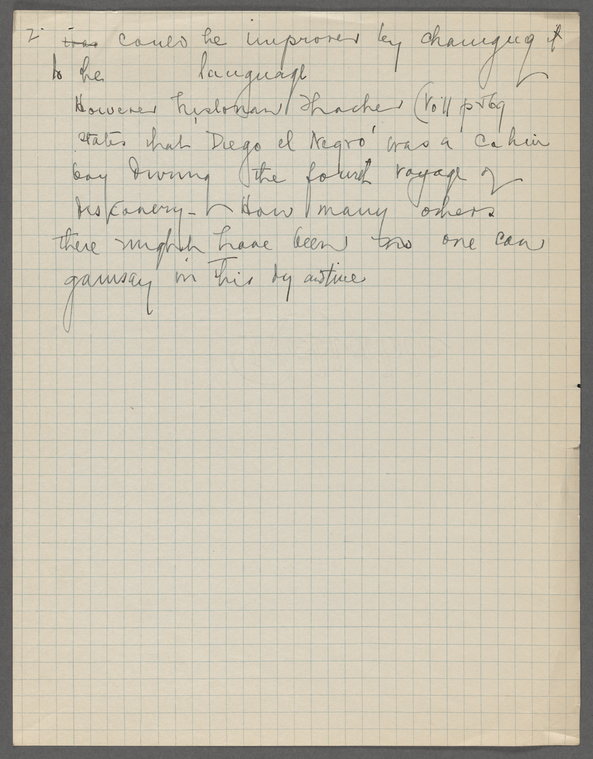 2. was could be improved by changing it
to the language
However historian Thacher (Vol II p 569
states that 'Diego el Negro' was a cabin
boy during the fourth voyage of
discovery - How many others
there might have been no one can
gainsay in this day